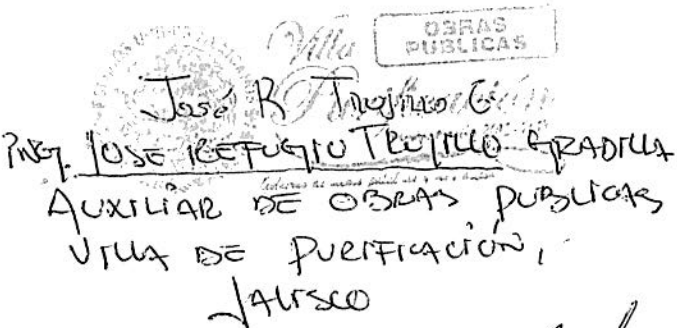 OBRAS
PUBLICAS
Villa
José R Trujillo G
ING. JOSE REFUGIO TRUJILLO GRADILLA
AUXILIAR DE OBRAS PUBLICAS
VILLA DE PURIFICACIÓN,
JALISCO